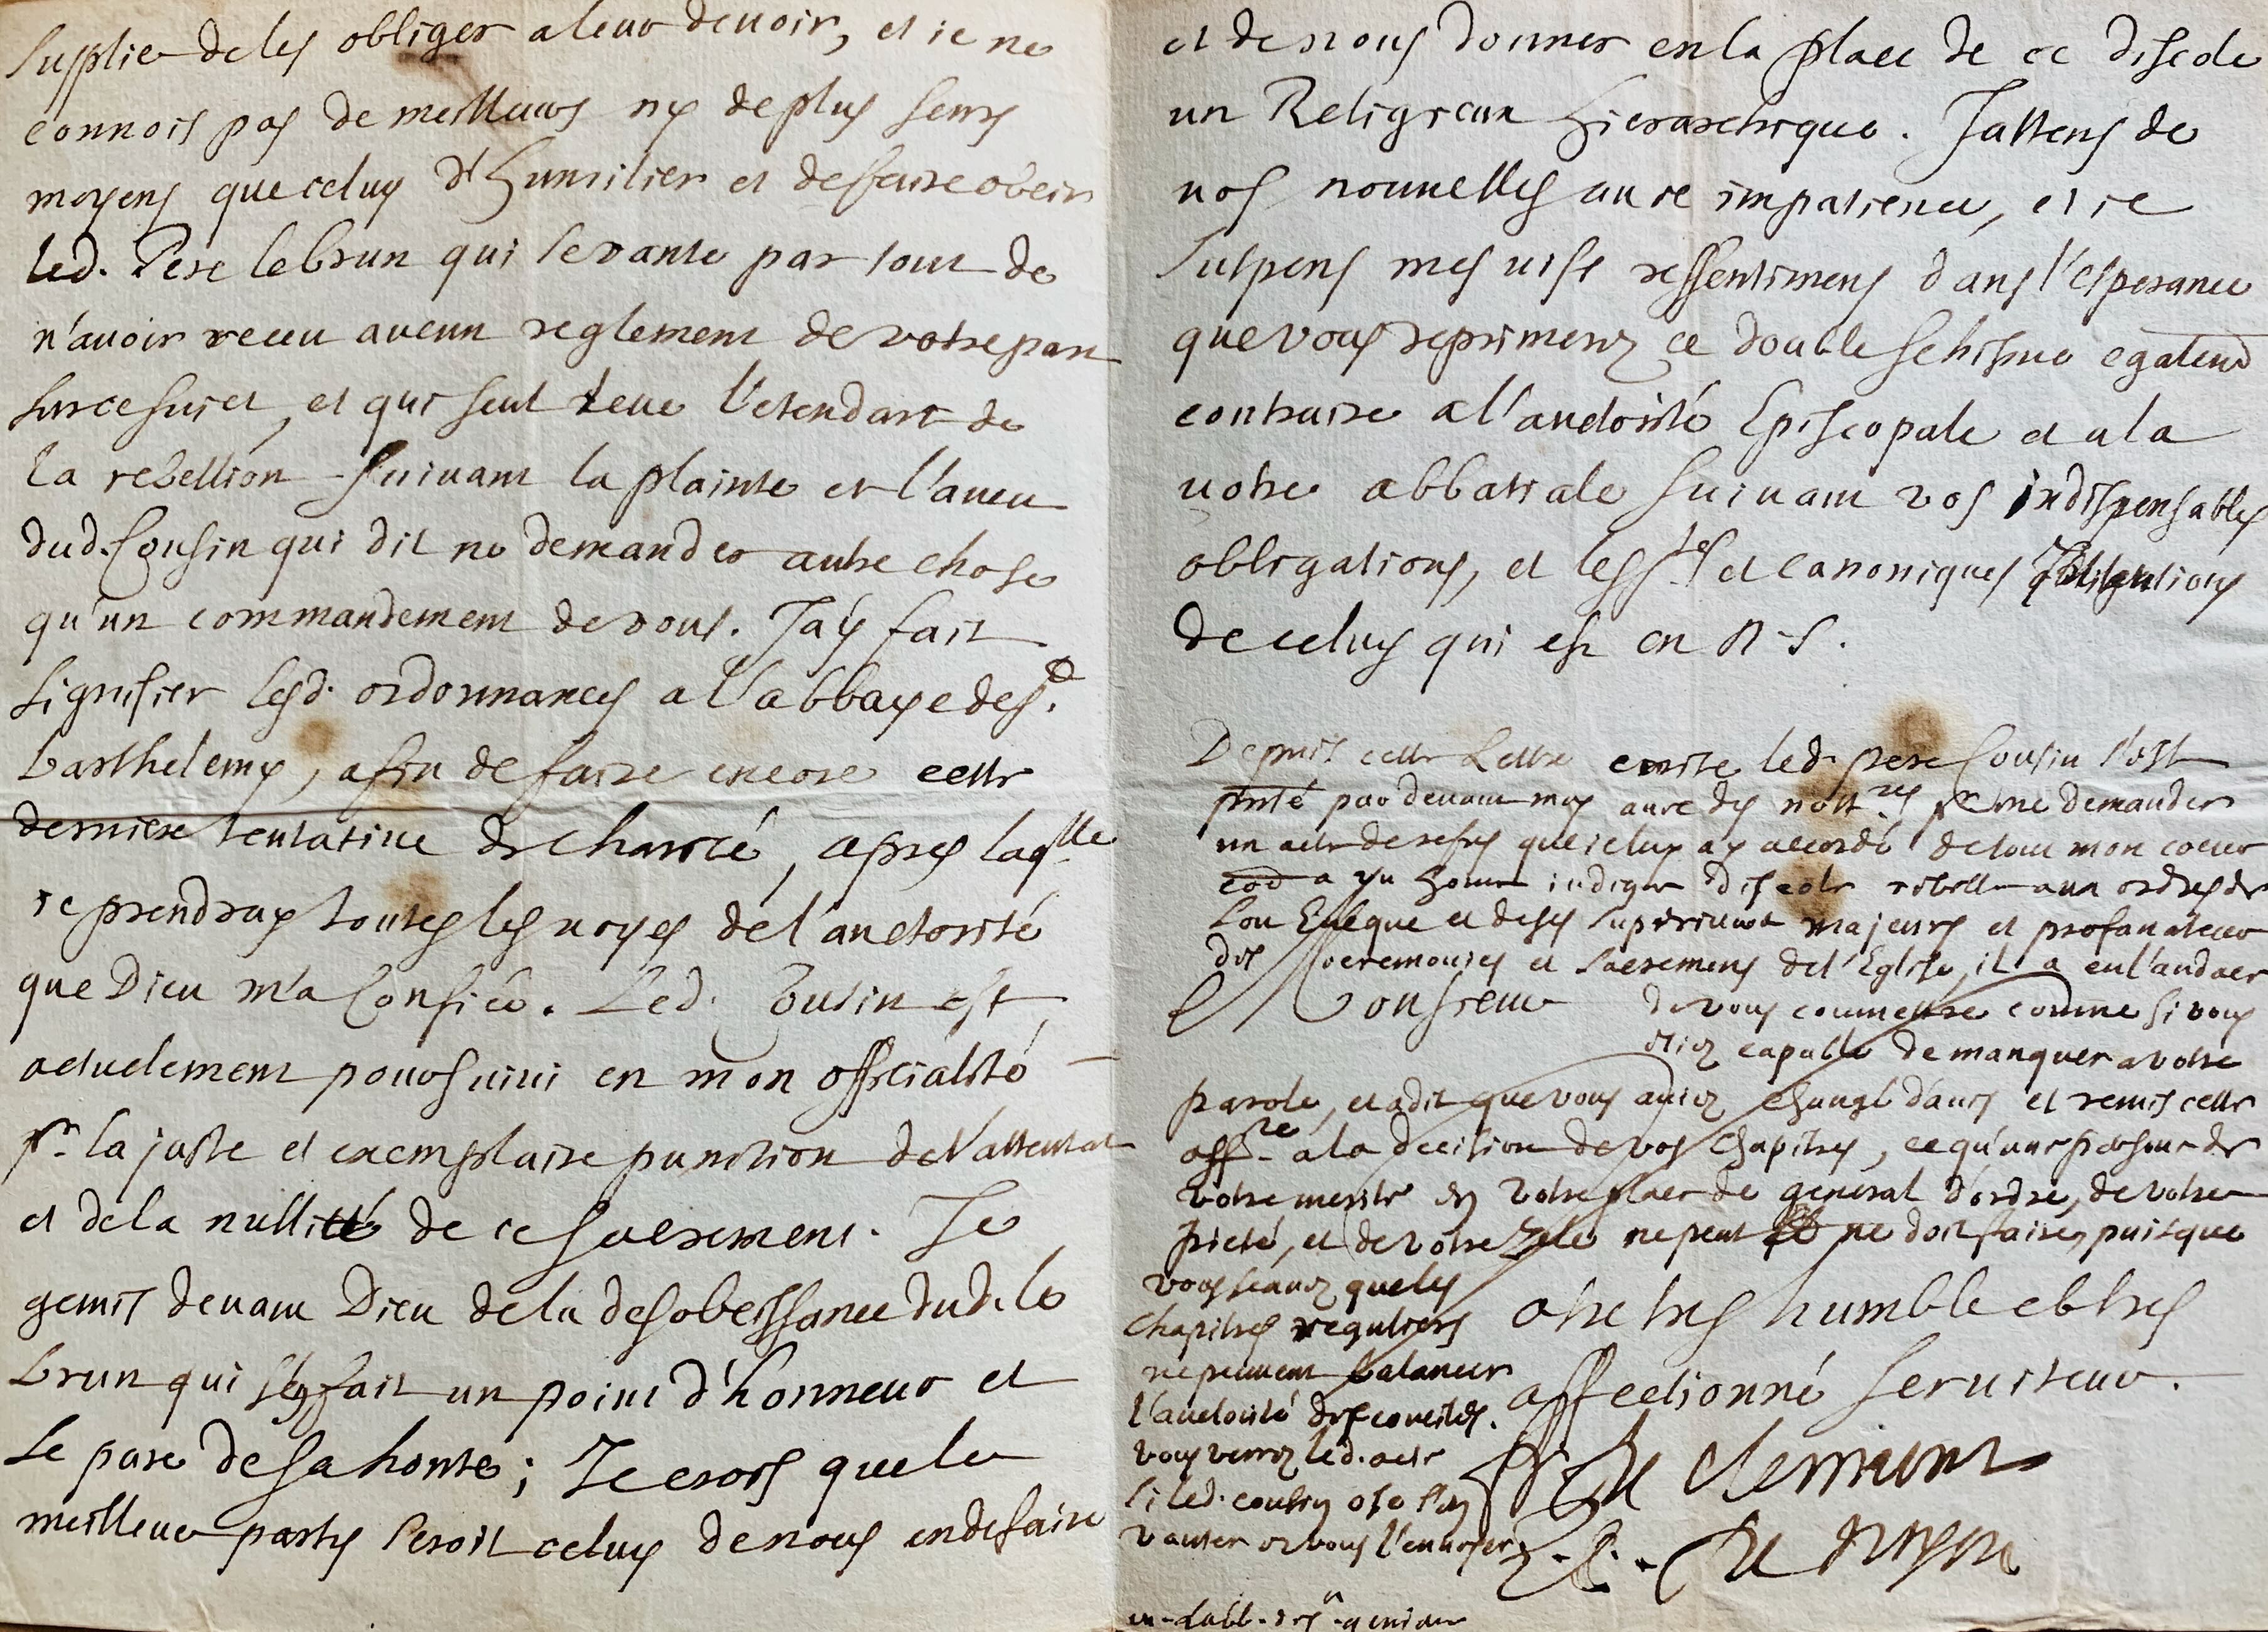 supplie de les obliger a leur devoir, et ie ne
connois pas de meilleurs ny de plus seurs
moyens que celuy d'humilier et de faire obeir
led. Pere lebrun qui se vante par tout de
n'auoir receu aucun reglement de votre part
sur ce suiet, et qui seul leue l'etendart de
la rebellion suiuant la plainte et l'aueu
dud. Cousin qui dit ne demander autre chose
qu'un commandement de vous. J'ay fait
signifier lesd. ordonnances a l'abbaye de st.
Barthelemy, afin de faire encore cette
derniere tentatiue de charité, apres laqlle
ie prendray toutes les uoyes de l'auctorité
que Dieu m'a Confiée. Led. Cousin est
actuelement poursuiui en mon officialité
pr. la juste et exemplaire punition de l'attentat
et de la nullité de ce sacrement. Je
gemis deuant Dieu de la desobeissance dud. le
Brun qui s'en fait un point d'honneur et
se pare de sa honte; Je crois que le
meilleur party seroit celuy de nous en defaire
et de nous donner en la place de ce discole
un Religieux hierarchique. J'attens de
uos nouuelles auec impatience, et ie
suspens mes uifs ressentimens dans l'esperance
que vous reprimerez ce double schisme egalemt
contraire a l'auctorité Episcopale et a la
uotre abbatiale suiuant vos indispensables
obligations, et les stes et canoniques
de celuy qui est en N. S.
Depuis cette Lettre écrite led. pere Cousin s'est
pnté par deuant moy auec des nottres pr me demander
un acte de refus que ie luy ay accordé de tout mon coeur
a un homme indigne discole rebelle aux ordres de
son Eueque et de ses superieurs majeurs et profanateur
des ceremonies et sacremens de l'Eglise, il a eu l'audace
Monsieur de vous commettre comme si vous
etiez capable de manquer a votre
parole, et a dit que vous auiez changé d'auis et remis cette
affre a la decision de vos chapitres, ce qu'une personne de
votre merite en votre place de general d'ordre, de votre
pieté, et de votre zele ne peut ne doit faire, puisque
vous scauez que les
chapitres reguliers
ne peuuent balancer
l'auctorité des conciles.
vous verrez led. acte
si led. cousin ose s'en
vanter et vous l'enuoyer
otre tres humble et tres
affectionné seruiteur.
de clermont
de noyon